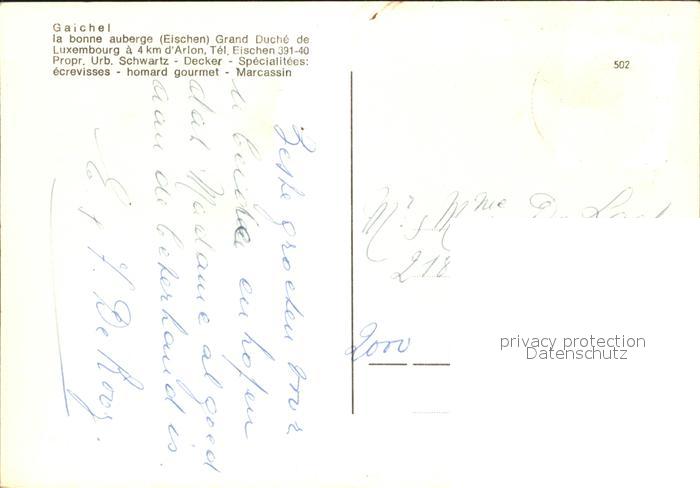 Gaichel
la bonne auberge (Eischen) Grand Duché de
Luxembourg à 4 km d'Arlon, Tél. Eischen 391-40
Propr. Urb. Schwartz - Decker - Spécialitées:
écrevisses - homard gourmet - Marcassin
502
Beste groeten voor
u beiden en hopen
dat Madame al goed
aan de beterhand is.
De Rooy.
Mr & Mme De
218
2000
privacy protection
Datenschutz